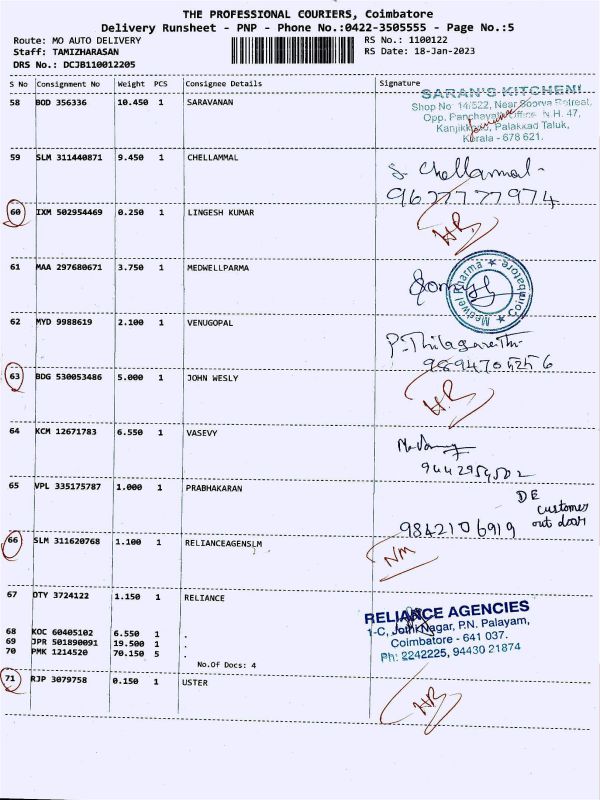 THE PROFESSIONAL COURIERS, Coimbatore
Delivery Runsheet - PNP - Phone No.:0422-3505555 - Page No.:5
Route: MO AUTO DELIVERY RS No.: 1100122
Staff: TAMIZHARASAN RS Date: 18-Jan-2023
DRS No.: DCJB110012205
S No Consignment No Weight PCS Consignee Details Signature
58 BOD 356336 10.450 1 SARAVANAN
SARAN'S KITCHEN!
Shop No 14/522, Near Poorva Retreat,
Opp. Panchayath Office N.H. 47,
Kanjikkode, Palakkad Taluk,
Kerala - 678 621.
59 SLM 311440871 9.450 1 CHELLAMMAL
S. Chellammal
9677777974
60 IXM 502954469 0.250 1 LINGESH KUMAR
61 MAA 297680671 3.750 1 MEDWELLPARMA
Medwel Pharma
Coimbatore
62 MYD 9988619 2.100 1 VENUGOPAL
P. Thilagavathi
9894705256
63 BDG 530053486 5.000 1 JOHN WESLY
64 KCM 12671783 6.550 1 VASEVY
65 VPL 335175787 1.000 1 PRABHAKARAN
DE
customer
out door
9842106919
66 SLM 311620768 1.100 1 RELIANCEAGENSLM
NM
67 OTY 3724122 1.150 1 RELIANCE
RELIANCE AGENCIES
1-C, Jothi Nagar, P.N. Palayam,
Coimbatore - 641 037.
Ph: 2242225, 94430 21874
68 KOC 60405102 6.550 1 .
69 JPR 501890091 19.500 1 .
70 PMK 1214520 70.150 5 .
No.Of Docs: 4
71 RJP 3079758 0.150 1 USTER